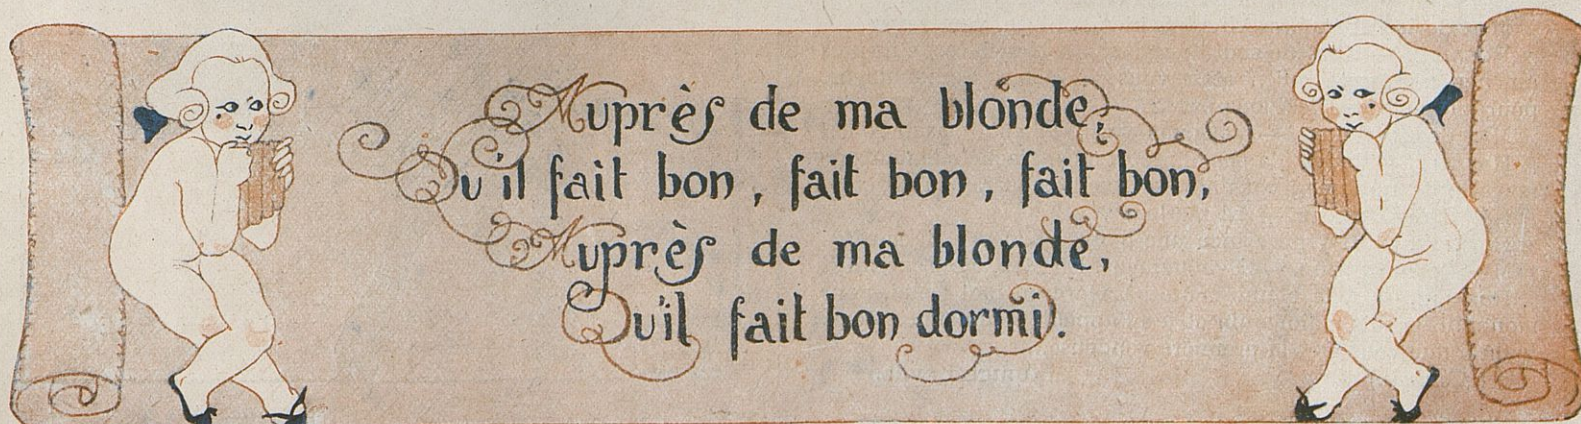 Auprès de ma blonde,
Qu'il fait bon, fait bon, fait bon,
Auprès de ma blonde,
Qu'il fait bon dormi).